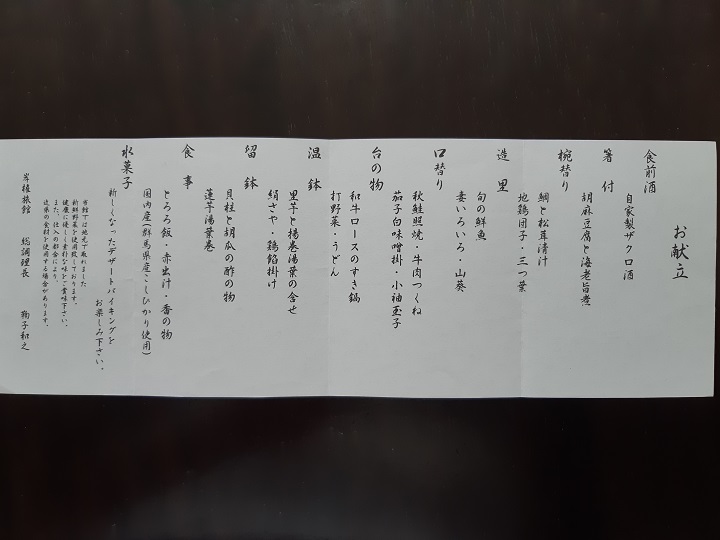 お献立
食前酒
自家製ザクロ酒
箸付
胡麻豆腐と海老旨煮
椀替り
鯛と松茸清汁
地鶏団子・三つ葉
造里
旬の鮮魚
妻いろいろ・山葵
口替り
秋鮭照焼・牛肉つくね
茄子白味噌掛・小袖玉子
台の物
和牛ロースのすき鍋
打野菜・うどん
温鉢
里芋と揚巻湯葉の含せ
絹さや・鶏餡掛け
留鉢
貝柱と胡瓜の酢の物
蓮芋湯葉巻
食事
とろろ飯・赤出汁・香の物
国内産(群馬県産こしひかり使用)
水菓子
新しくなったデザートバイキングを
お楽しみ下さい。
当館では地元で取れました
新鮮野菜を使用致しております。
健康に優しく素朴な味をご賞味下さい。
また、仕入の都合により、
近県の食材を使用する場合があります。
岸権旅館 総調理長 鞠子和之